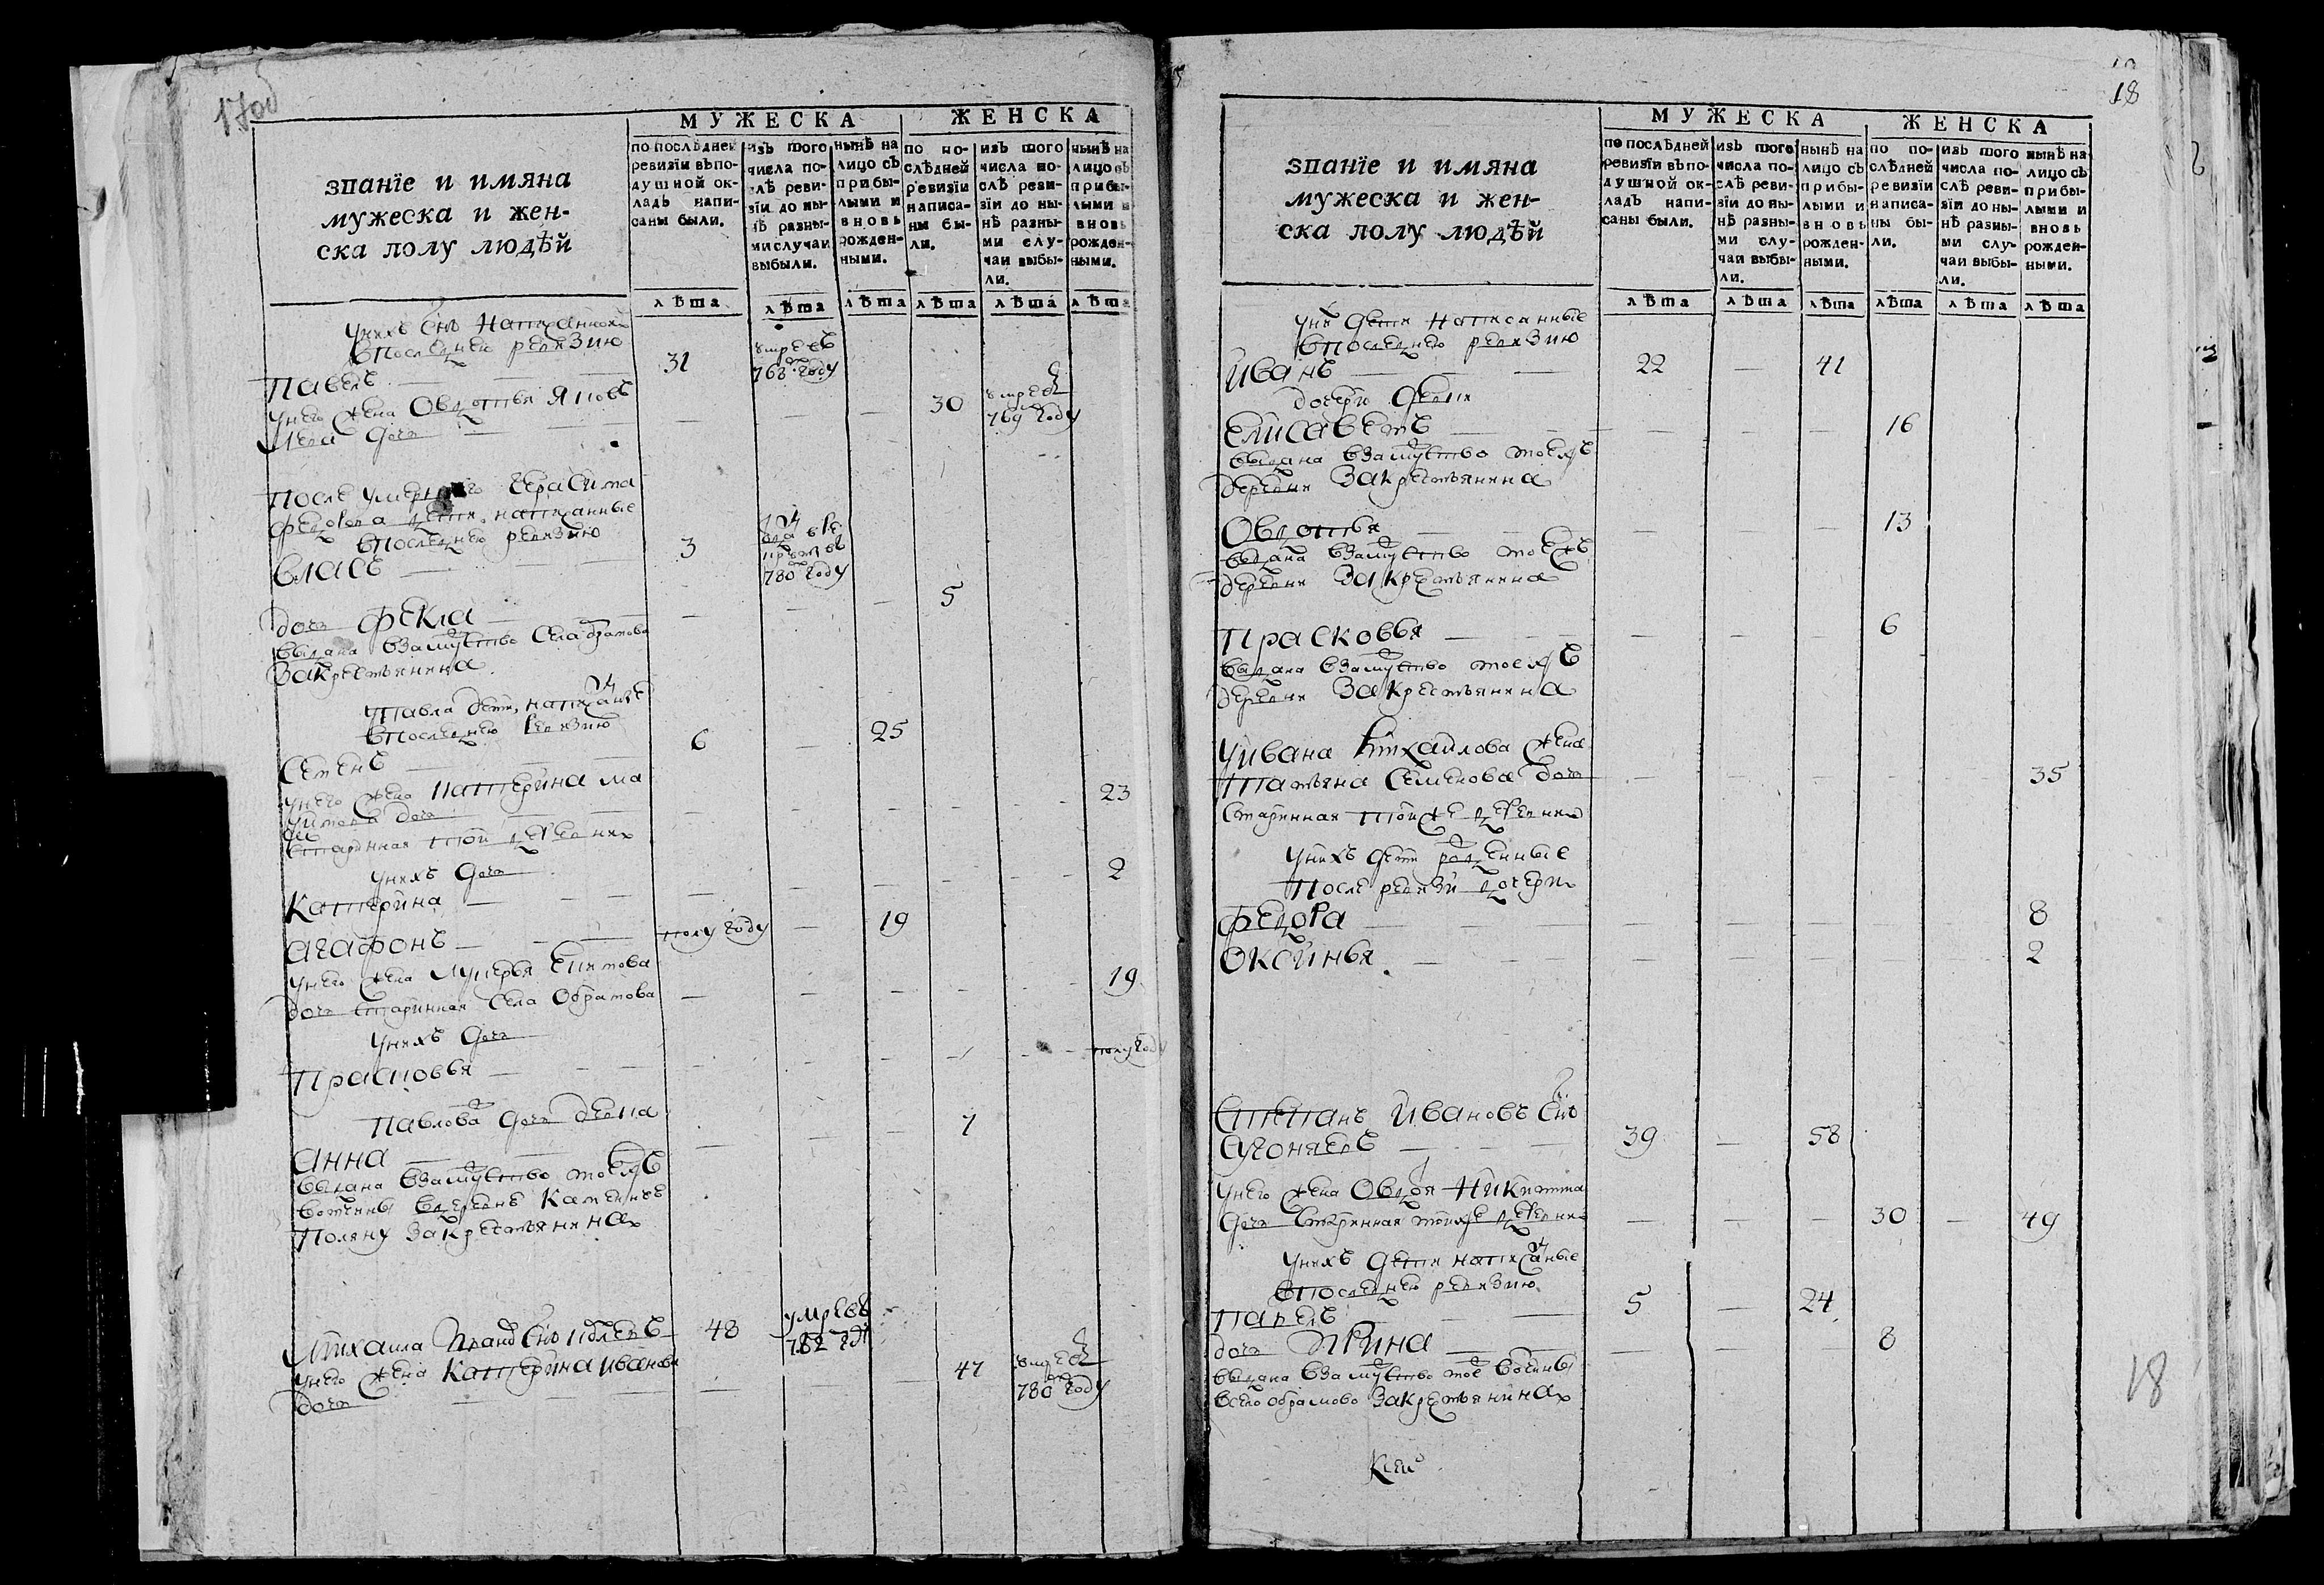 17об
МУЖЕСКА
ЖЕНСКА
званїе и имяна
мужеска и жен-
ска полу людѣй
по послѣдней
ревизїи въ по-
душной ок-
ладъ напи-
саны были.
изъ того
числа по-
слѣ реви-
зїи до ны-
нѣ разны-
ми случаи
выбыли.
нынѣ на
лицо съ
прибы-
лыми и
вновь
рожден-
ными.
по по-
слѣдней
ревизїи
написа-
ны бы-
ли.
изъ того
числа по-
слѣ реви-
зїи до ны-
нѣ разны-
ми слу-
чаи выбы-
ли.
нынѣ на
лицо съ
прибы-
лыми и
вновь
рожден-
ными.
лѣта лѣта лѣта лѣта лѣта лѣта
у них снъ написанной
в последнею ревизию
Павелъ 31 умреъ 768 году
у него жена Овдотья
дочь 30 умре 769 году
После умершего Герасима
Федорова дети написанные
в последнею ревизию
Власъ 3 780 году
дочь Фекла 5
выдана взамужство села
за крестьянина
у Павла дети написаные
в последнею ревизию
Семенъ 6 25
у него жена Катерина
дочь 23
старинная той деревни
у них дочь
Катерина 2
Агафонъ полугоду 19
у него жена Лукерья
дочь старинная села 19
у них дочь
Прасковья полугоду
Павлова дочь девка
Анна 7
выдана взамужство тоежъ
вотчины в деревню
Поляну за крестьянина
Михаила снъ 48 умреъ 782 год
у него жена Катерина Иванова
дочь 47 умре 780 году
18
МУЖЕСКА
ЖЕНСКА
званїе и имяна
мужеска и жен-
ска полу людѣй
по послѣдней
ревизїи въ по-
душной ок-
ладъ напи-
саны были.
изъ того
числа по-
слѣ реви-
зїи до ны-
нѣ разны-
ми слу-
чаи выбы-
ли.
нынѣ на
лицо съ
прибы-
лыми и
вновь
рожден-
ными.
по по-
слѣдней
ревизїи
написа-
ны бы-
ли.
изъ того
числа по-
слѣ реви-
зїи до ны-
нѣ разны-
ми слу-
чаи выбы-
ли.
нынѣ на
лицо съ
прибы-
лыми и
вновь
рожден-
ными.
лѣта лѣта лѣта лѣта лѣта лѣта
у них дети написанные
в последнею ревизию
Иванъ 22 41
дочери девки
Елисаветъ 16
выдана взамужство тоежъ
деревни за крестьянина
Овдотья 13
выдана взамужство тоежъ
деревни за крестьянина
Прасковья 6
выдана взамужство тоежъ
деревни за крестьянина
у Ивана Михайлова жена
Татьяна Семенова дочь 35
старинная той же деревни
у них дети рожденные
после ревизи дочери
Федора 8
Оксинья 2
Степанъ Ивановъ снъ
39 58
у него жена Овдотья Никитина
дочь старинная той же деревни 30 49
у них дети написаные
в последнею ревизию
Павелъ 5 24
дочь Ирина 8
выдана взамужство той вотчины
в село за крестьянина
18